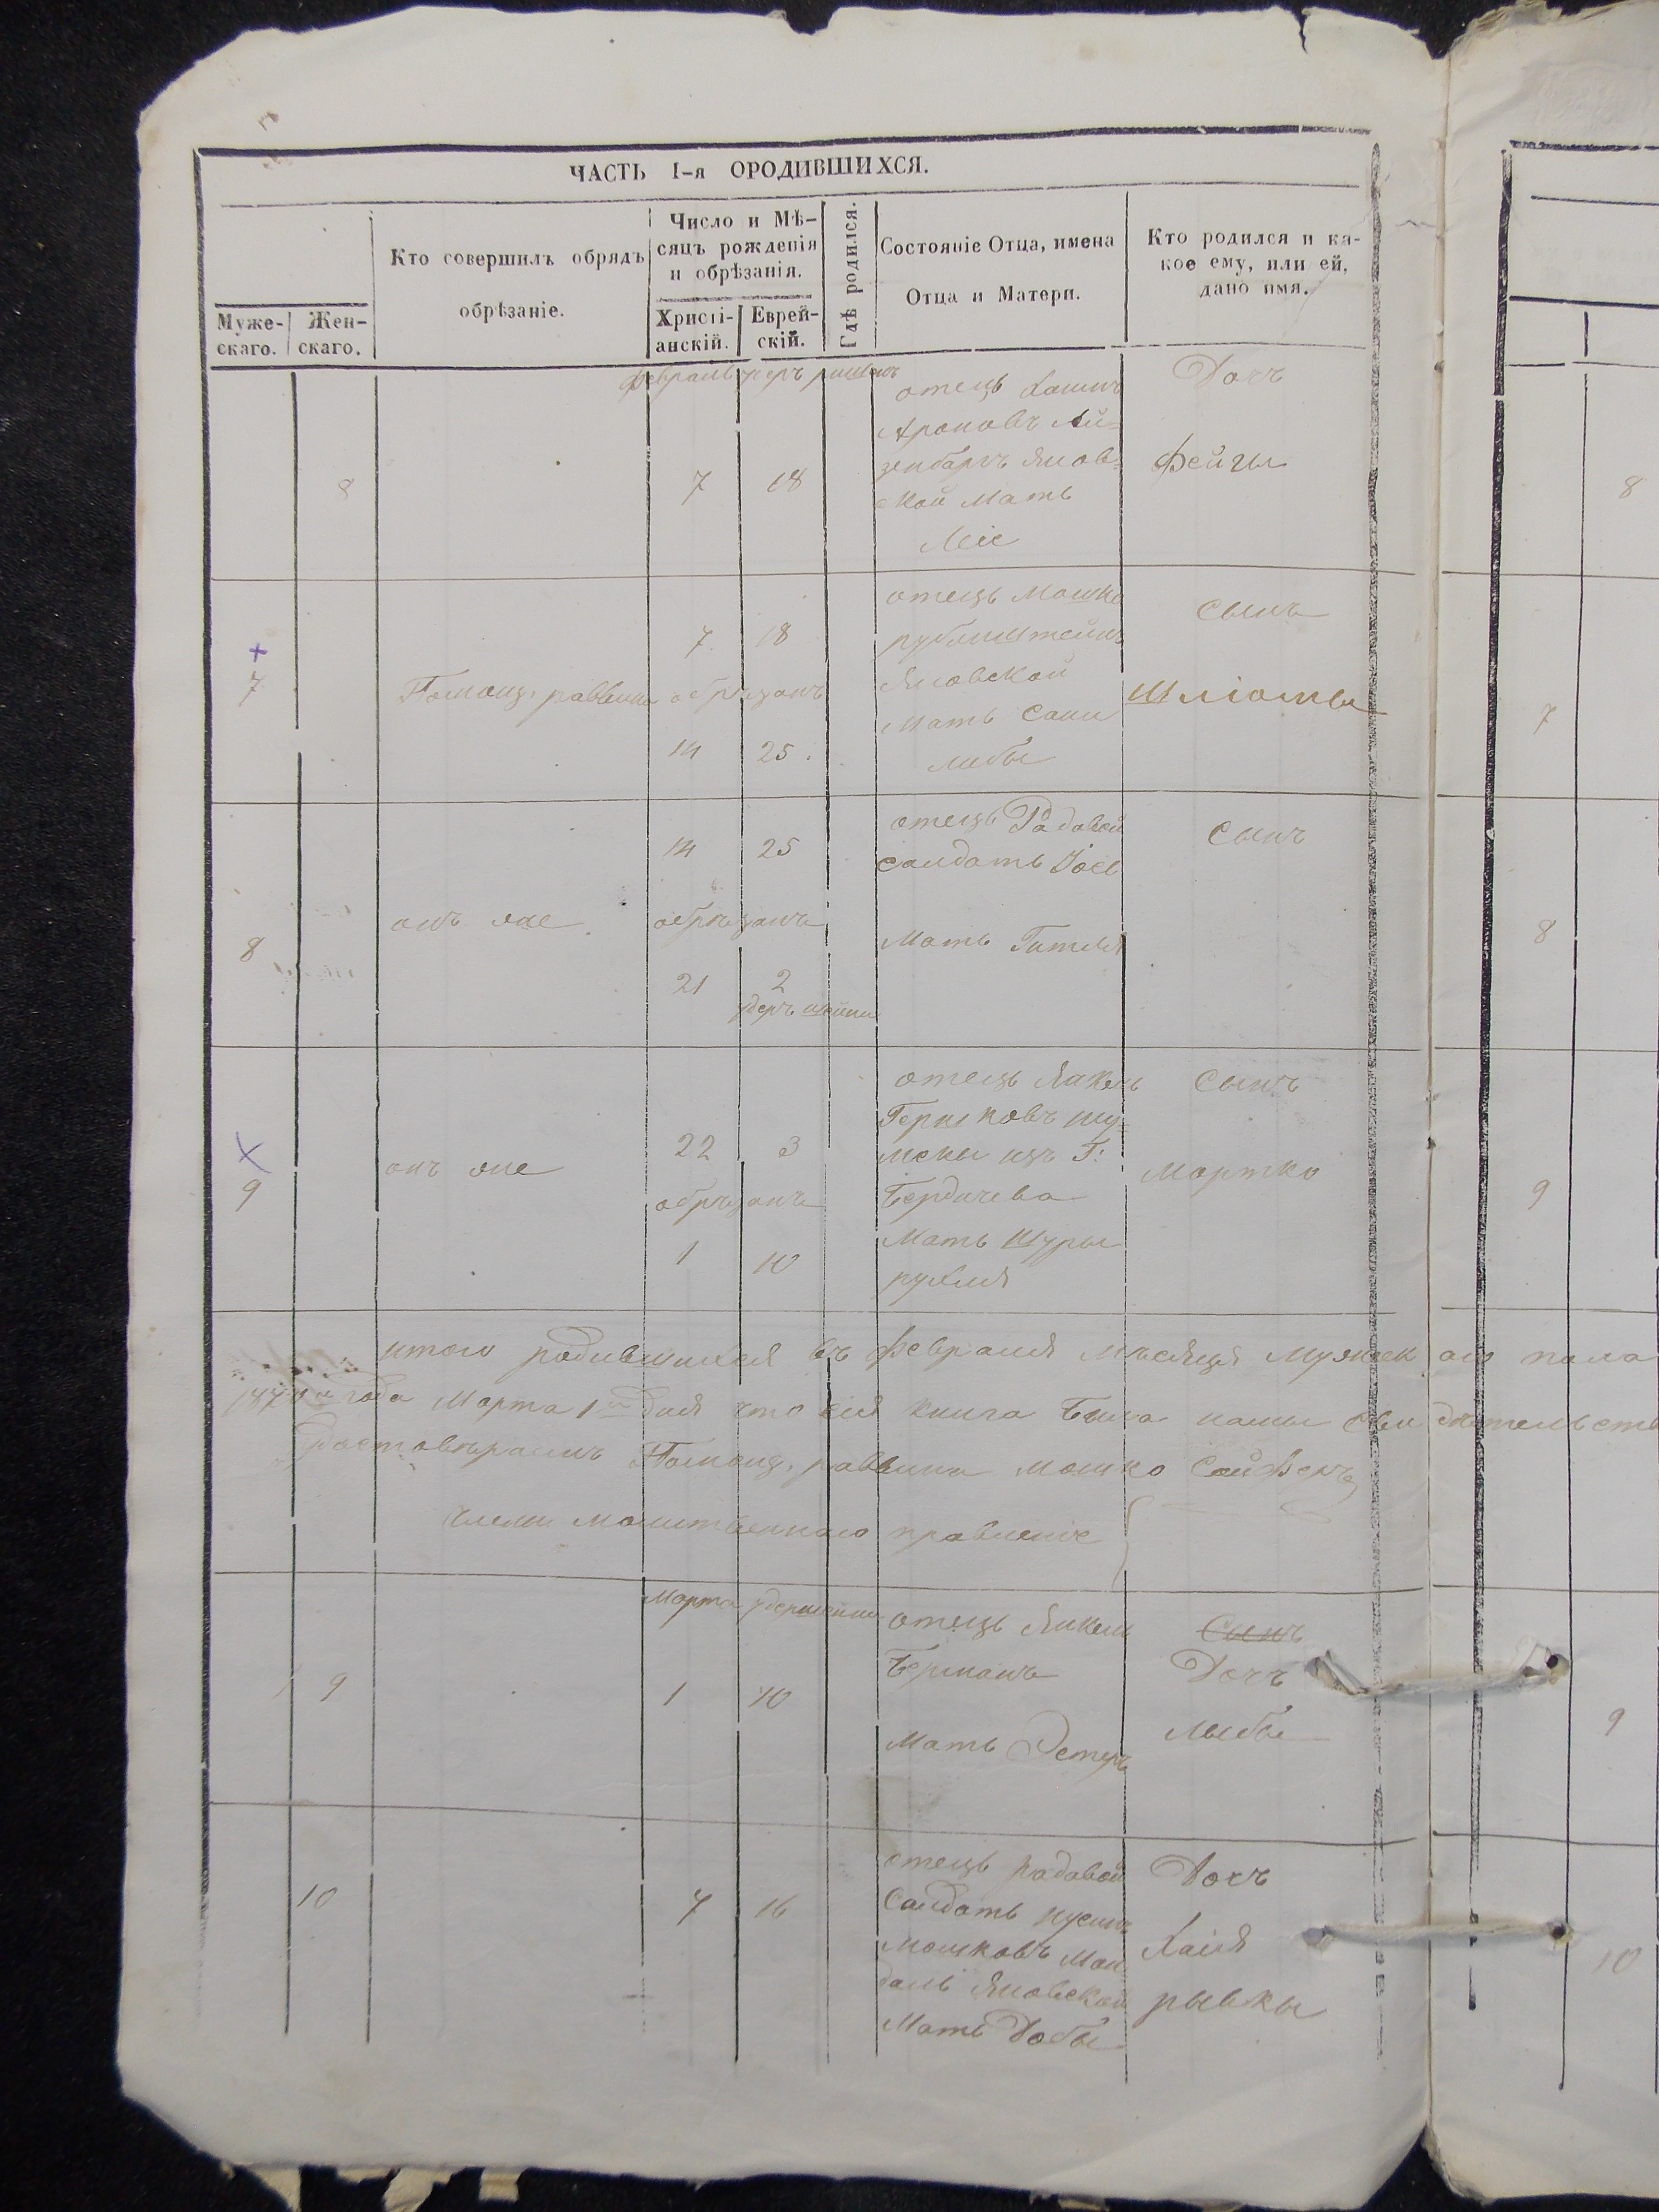 ЧАСТЬ I-я ОРОДИВШИХСЯ.
Муже-скаго.
Жен-скаго.
Кто совершилъ обрядъ
обрѣзаніе.
Число и Мѣ-
сяцъ рожденія
и обрѣзанія.
Христі-
анскій.
Еврей-
скій.
Гдѣ родился.
Состояніе Отца, имена
Отца и Матери.
Кто родился и ка-
кое ему, или ей,
дано имя.
февраль
8
7
18
отецъ Хаимъ
Ароновъ Ай-
зенбаргъ Янов-
ской Мать
Леіе
Дочъ
Фейгы
8
7
Помощ. раввина
7 18
обрѣзанъ
14 25
отецъ Мошко
рубинштейнъ
Яновской
Мать Сани
либы
Сынъ
Шліомы
7
8
онъ же
14 25
обрѣзанъ
21 2
отецъ Радовой
Салдатъ Іось
Мать Гитля
Сынъ
8
9
онъ же
22 3
обрѣзанъ
1 10
отецъ Янкель
Гершковъ
изъ Г:
Бердичева
Мать Шуры
рухля
Сынъ
Мортко
9
итого родившихся въ февраля Мѣсяця Мужескаго пола
187 года Марта 1 дня что сія книга была нами свидѣтельств
Помощ. раввина Мошко Сойферъ
члены Молитвеннаго правленіе
Марта
9
1
10
отецъ Янкель
Берманъ
Мать Эстеръ
Сынъ
Дочъ
либы
9
10
7
16
отецъ радовой
Салдатъ
Мошковъ Ман
даль Яновской
Мать Добы
Дочъ
Хаія
рывкы
10